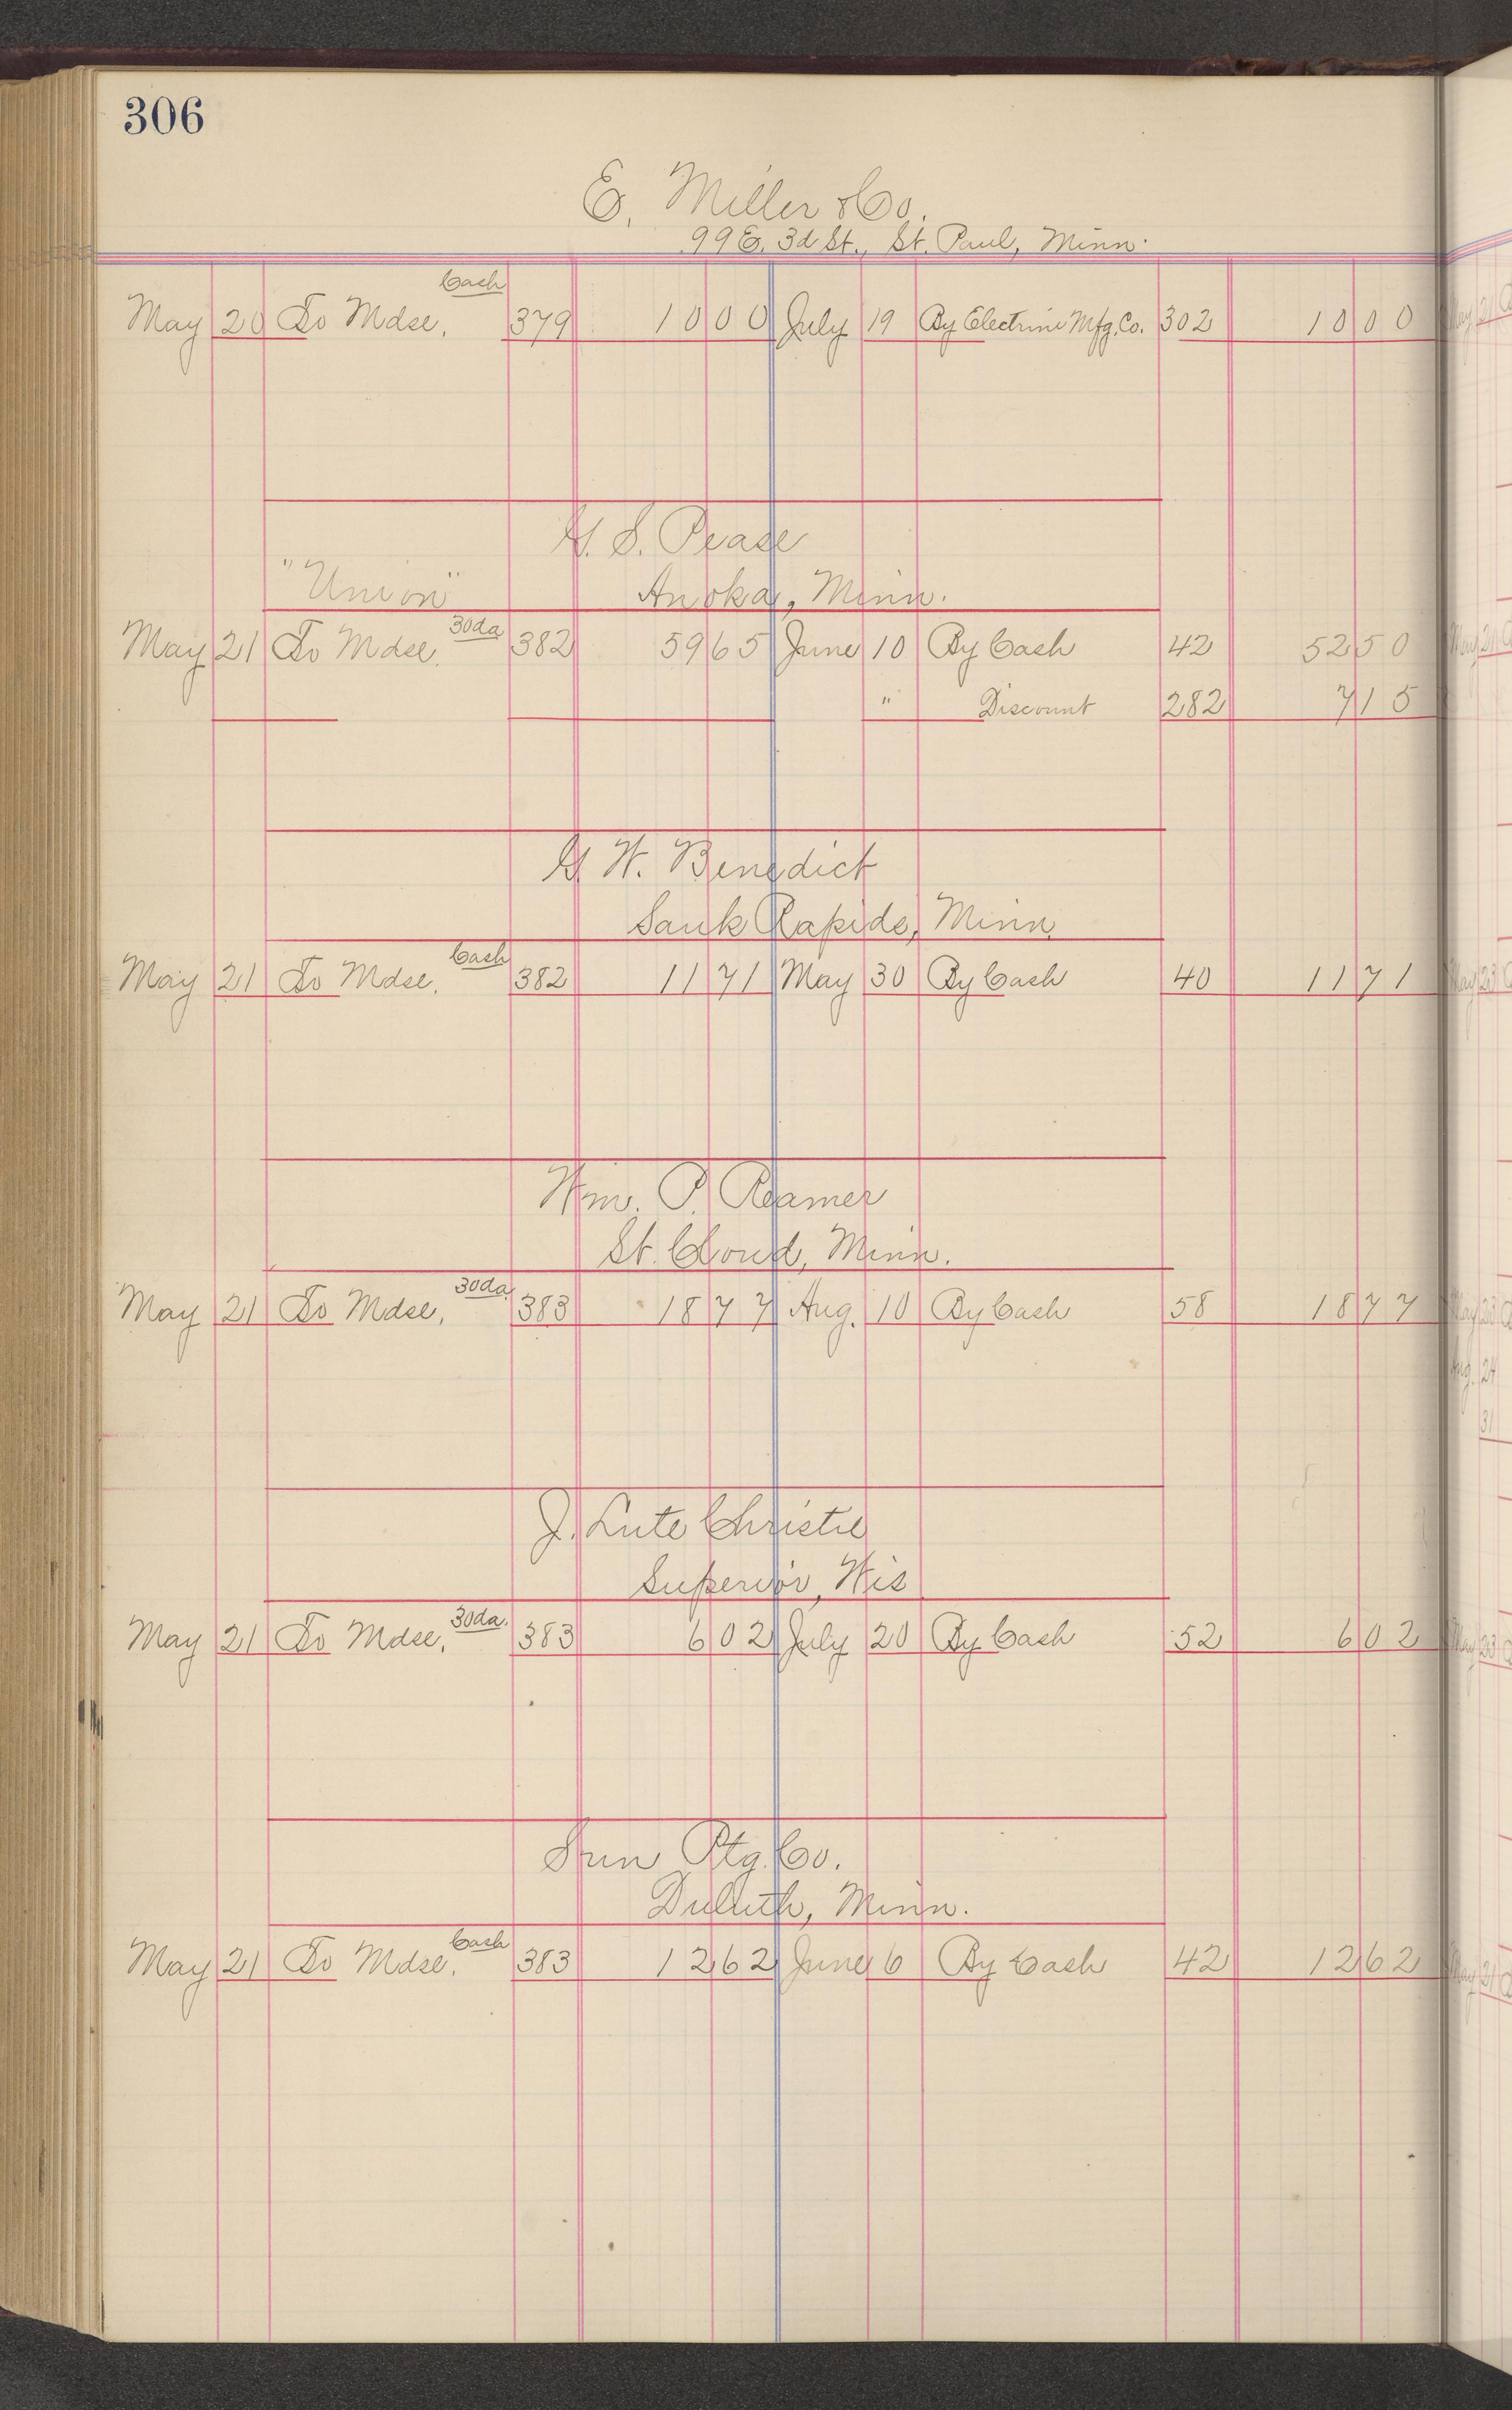 306
E. Miller & Co.
99 E. 3d St., St. Paul, Minn.
Cash
May 20 To Mdse. 379 10 00 July 19 By Electrine Mfg. Co. 302 10 00
G. S. Pease
"Union" Anoka, Minn.
30da
May 21 To Mdse. 382 59 65 June 10 By Cash 42 52 50
" Discount 282 7 15
G. W. Benedict
Sauk Rapids, Minn.
Cash
May 21 To Mdse. 382 11 71 May 30 By Cash 40 11 71
Wm. P. Reamer
St. Cloud, Minn.
30da
May 21 To Mdse. 383 18 77 Aug. 10 By Cash 58 18 77
J. Lute Christie
Superior, Wis
30da.
May 21 To Mdse. 383 6 02 July 20 By Cash 52 6 02
Sun Ptg. Co.
Duluth, Minn.
Cash
May 21 To Mdse. 383 12 62 June 6 By Cash 42 12 62